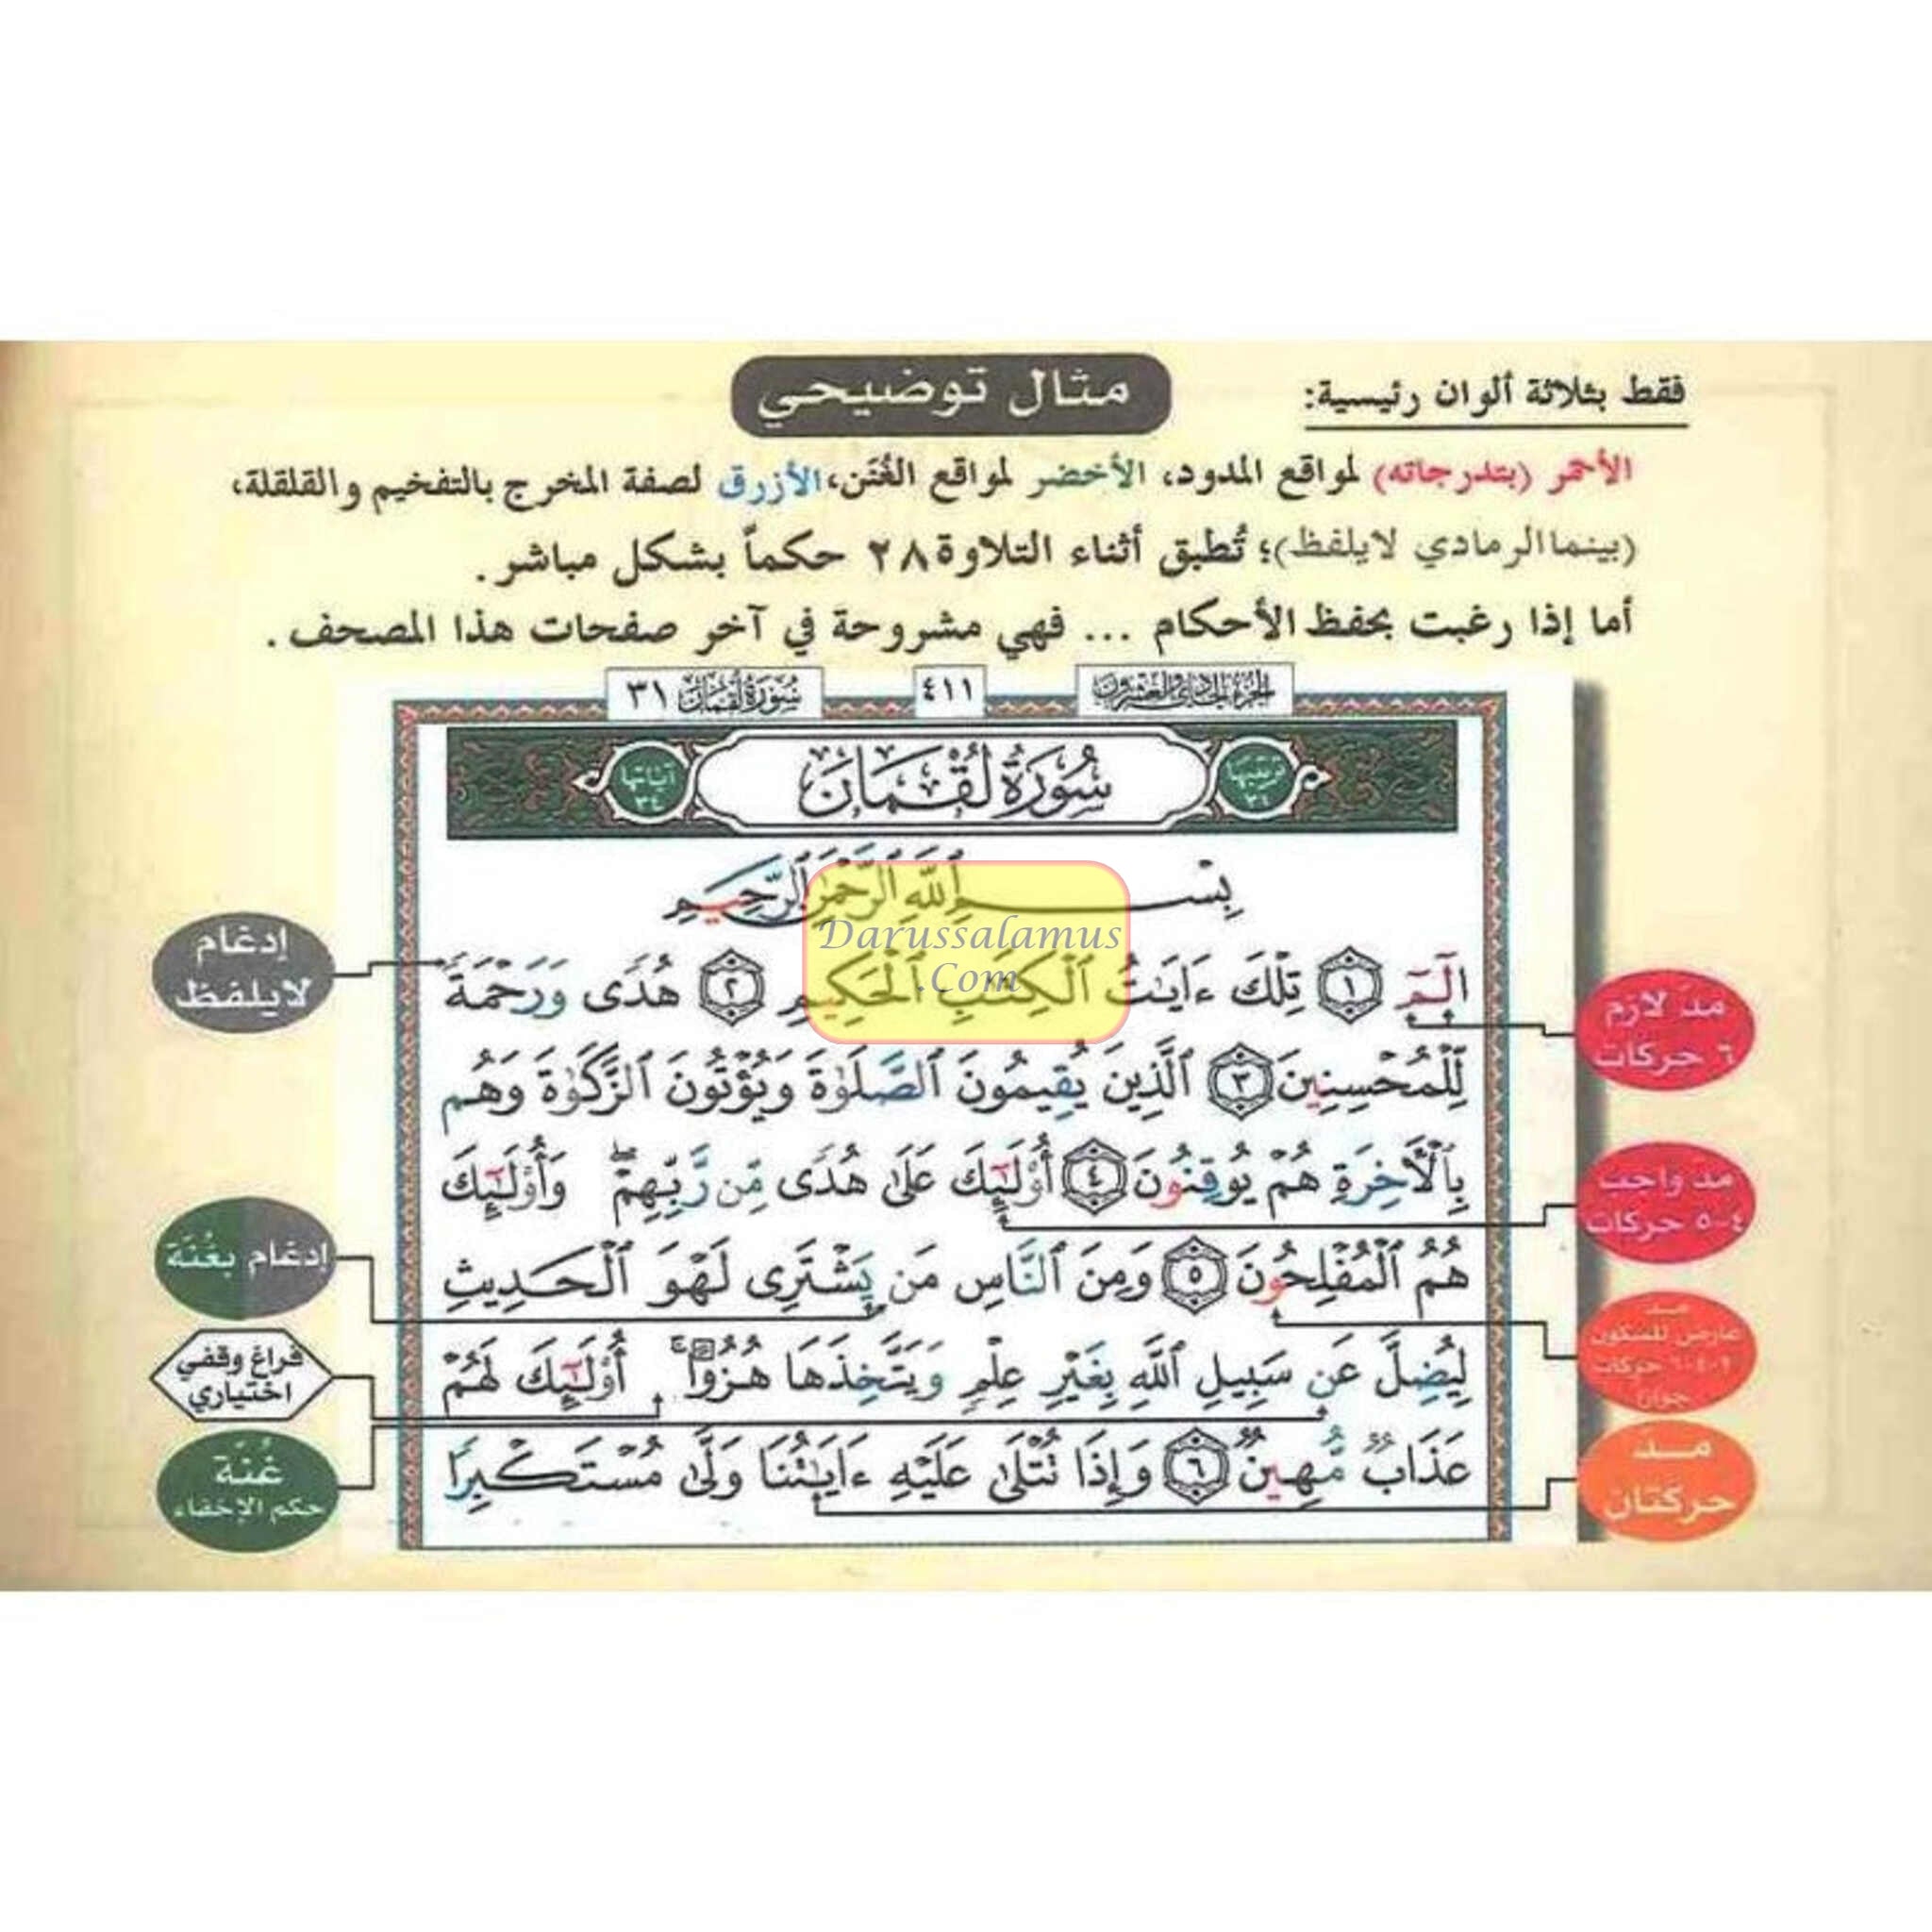 مثال توضيحي
فقط بثلاثة ألوان رئيسية:
الأحمر (بتدرجاته) لمواقع المدود، الأخضر لمواقع الغُنَن، الأزرق لصفة المخرج بالتفخيم والقلقلة،
(بينما الرمادي لايلفظ)؛ تُطبق أثناء التلاوة ٢٨ حكماً بشكل مباشر.
أما إذا رغبت بحفظ الأحكام ... فهي مشروحة في آخر صفحات هذا المصحف.
الجزء الحادي والعشرون
٤١١
سورة لقمان ٣١
ترتيبها ٣١
سُورَةُ لُقْمَان
آياتها ٣٤
بِسْمِ ٱللَّهِ ٱلرَّحْمَٰنِ ٱلرَّحِيمِ
Darussalamus
.Com
الٓمٓ ١ تِلْكَ ءَايَٰتُ ٱلْكِتَٰبِ ٱلْحَكِيمِ ٢ هُدًى وَرَحْمَةً
لِّلْمُحْسِنِينَ ٣ ٱلَّذِينَ يُقِيمُونَ ٱلصَّلَوٰةَ وَيُؤْتُونَ ٱلزَّكَوٰةَ وَهُم
بِٱلْآخِرَةِ هُمْ يُوقِنُونَ ٤ أُو۟لَٰٓئِكَ عَلَىٰ هُدًى مِّن رَّبِّهِمْ ۖ وَأُو۟لَٰٓئِكَ
هُمُ ٱلْمُفْلِحُونَ ٥ وَمِنَ ٱلنَّاسِ مَن يَشْتَرِى لَهْوَ ٱلْحَدِيثِ
لِيُضِلَّ عَن سَبِيلِ ٱللَّهِ بِغَيْرِ عِلْمٍ وَيَتَّخِذَهَا هُزُوًا ۚ أُو۟لَٰٓئِكَ لَهُمْ
عَذَابٌ مُّهِينٌ ٦ وَإِذَا تُتْلَىٰ عَلَيْهِ ءَايَٰتُنَا وَلَّىٰ مُسْتَكْبِرًا
مدّ لازم
٦ حركات
مدّ واجب
٤-٥ حركات
مد
عارض للسكون
٢-٤-٦ حركات
جوازا
مد
حركتان
إدغام
لايلفظ
إدغام بغُنّة
فراغ وقفي
اختياري
غُنّة
حكم الإخفاء